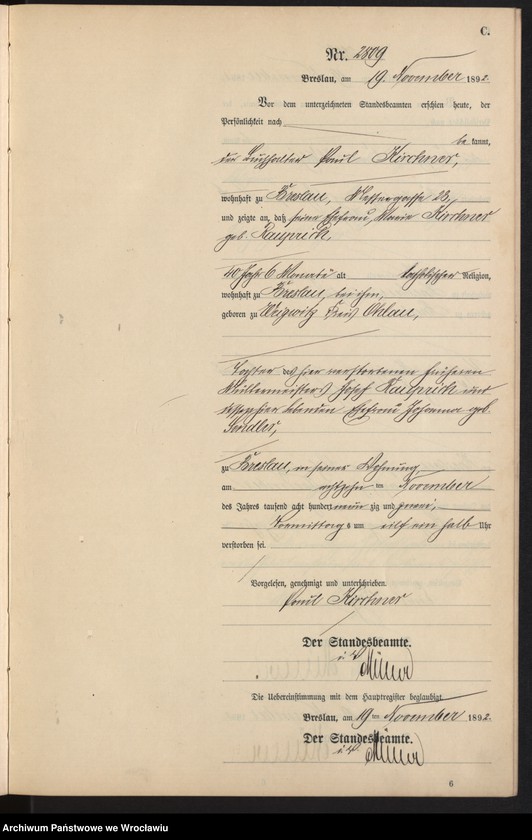 C.
Nr. 2809
Breslau, am 19. November 1892.
Vor dem unterzeichneten Standesbeamten erschien heute, der
Persönlichkeit nach
be kannt,
der Buchhalter Paul Kirchner,
wohnhaft zu Breslau, Messergasse 23,
und zeigte an, daß seine Ehefrau, Marie Kirchner
geb. Rauprich,
40 Jahr 6 Monate alt katholischer Religion,
wohnhaft zu Breslau, bei ihm,
geboren zu Weigwitz Kreis Ohlau,
Tochter des hier verstorbenen früheren
Müllermeisters Josef Rauprich und
dessen hier lebenden Ehefrau Johanna geb.
zu Breslau, in seiner Wohnung,
am achtzehn ten November
des Jahres tausend acht hundert neun zig und zwei,
Vormittag s um eilf ein halb Uhr
verstorben sei.
Vorgelesen, genehmigt und unterschrieben.
Paul Kirchner
Der Standesbeamte.
Die Uebereinstimmung mit dem Hauptregister beglaubigt.
Breslau, am 19 ten November 1892.
Der Standesbeamte.
6
Archiwum Państwowe we Wrocławiu